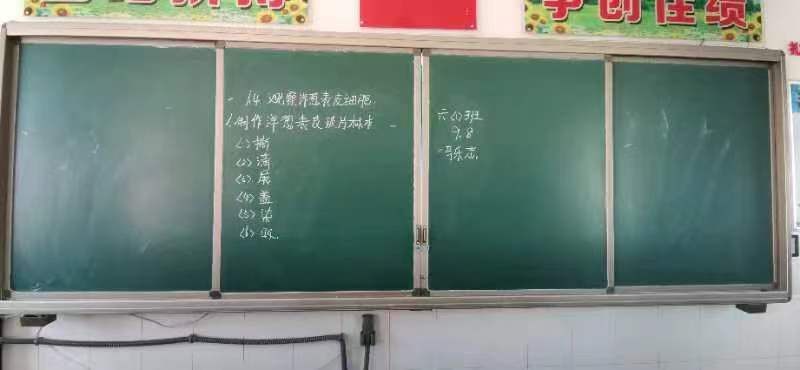 争创佳绩
一 1.4 观察洋葱表皮细胞
1.制作洋葱表皮玻片标本
(1) 撕
(2) 滴
(3) 展
(4) 盖
(5) 染
(6) 吸
六(1)班
9.8